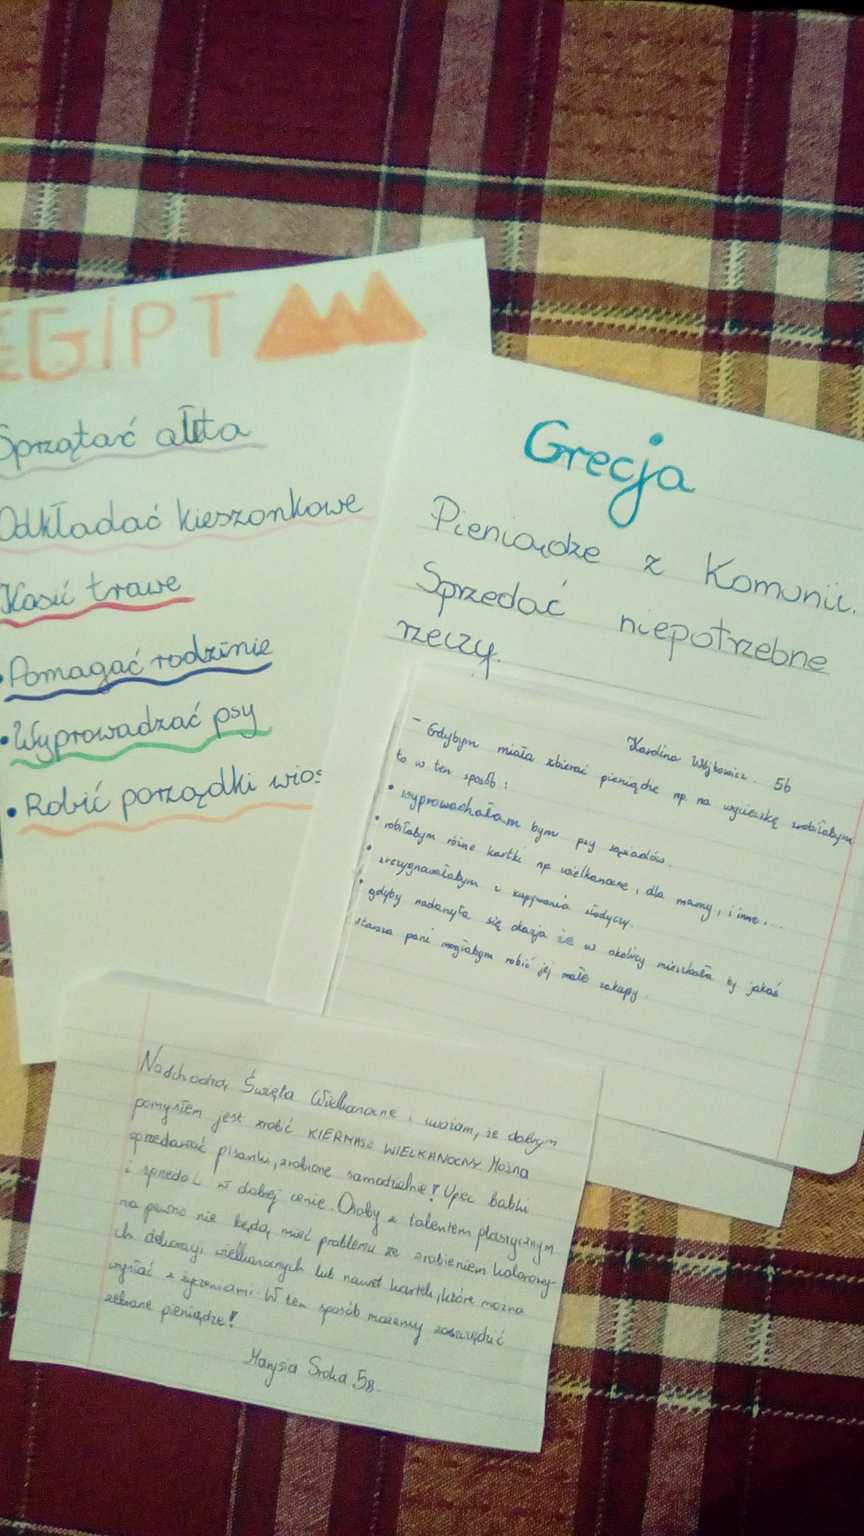 EGIPT
Sprzątać auta
Odkładać kieszonkowe
Kosić trawe
• Pomagać rodzinie
• Wyprowadzać psy
• Robić porządki wios
Grecja
Pieniądze z Komunii.
Sprzedać niepotrzebne
rzeczy.
Karolina Wójtowicz. 5b
- Gdybym miała zbierać pieniądze np. na wycieczkę zrobiłabym
to w ten sposób:
• wyprowadzałam bym psy sąsiadów.
• robiłabym różne kartki np wielkanocne, dla mamy, i inne...
• zrezygnowałabym z kupywania słodyczy.
• gdyby nadarzyła się okazja że w okolicy mieszkała by jakaś
starsza pani mogłabym robić jej małe zakupy.
Nadchodzą Święta Wielkanocne i uważam, że dobrym
pomysłem jest zrobić KIERMASZ WIELKANOCNY. Można
sprzedawać pisanki, zrobione samodzielnie! Upiec Babki
i sprzedać w dobrej cenie. Osoby z talentem plastycznym
na pewno nie będą mieć problemu ze zrobieniem kolorowy-
ch dekoracji wielkanocnych lub nawet kartek, które można
wysłać z życzeniami. W ten sposób możemy zaoszczędzić
zebrane pieniądze!
Marysia Sroka 5B.